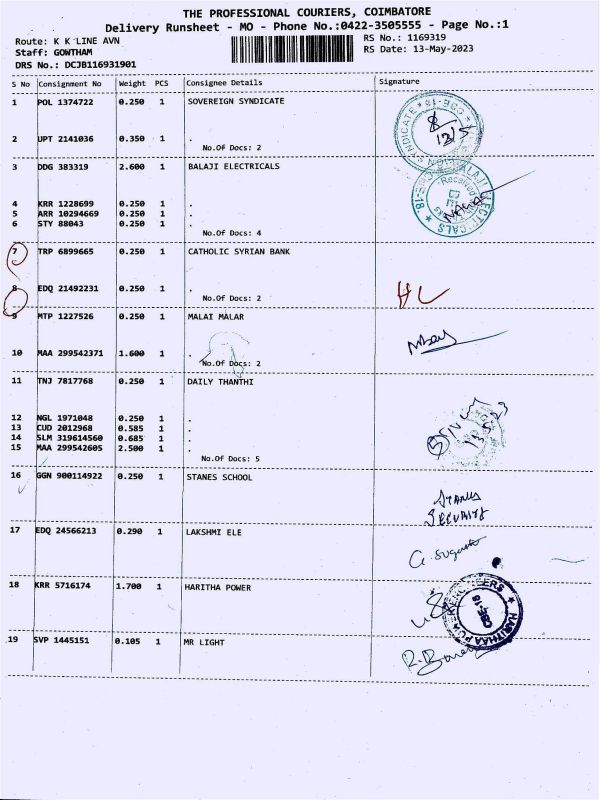 THE PROFESSIONAL COURIERS, COIMBATORE
Delivery Runsheet - MO - Phone No.:0422-3505555 - Page No.:1
Route: K K LINE AVN
RS No.: 1169319
Staff: GOWTHAM
RS Date: 13-May-2023
DRS No.: DCJB116931901
S No Consignment No Weight PCS Consignee Details Signature
1 POL 1374722 0.250 1 SOVEREIGN SYNDICATE
2 UPT 2141036 0.350 1 .
No.Of Docs: 2
3 DDG 383319 2.600 1 BALAJI ELECTRICALS
4 KRR 1228699 0.250 1 .
5 ARR 10294669 0.250 1 .
6 STY 88043 0.250 1 .
No.Of Docs: 4
7 TRP 6899665 0.250 1 CATHOLIC SYRIAN BANK
8 EDQ 21492231 0.250 1 .
No.Of Docs: 2
9 MTP 1227526 0.250 1 MALAI MALAR
10 MAA 299542371 1.600 1 .
No.Of Docs: 2
11 TNJ 7817768 0.250 1 DAILY THANTHI
12 NGL 1971048 0.250 1 .
13 CUD 2012968 0.585 1 .
14 SLM 319614560 0.685 1 .
15 MAA 299542605 2.500 1 .
No.Of Docs: 5
16 GGN 900114922 0.250 1 STANES SCHOOL
Stanes
Security
17 EDQ 24566213 0.290 1 LAKSHMI ELE
18 KRR 5716174 1.700 1 HARITHA POWER
19 SVP 1445151 0.105 1 MR LIGHT